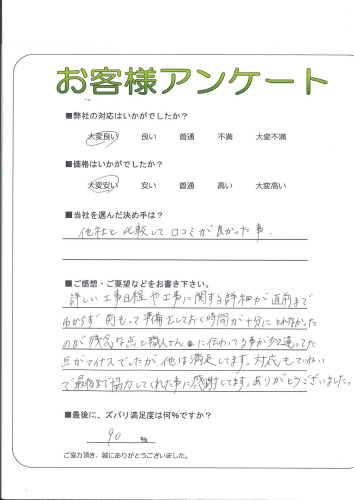 お客様アンケート
■弊社の対応はいかがでしたか？
大変良い 良い 普通 不満 大変不満
■価格はいかがでしたか？
大変安い 安い 普通 高い 大変高い
■当社を選んだ決め手は？
他社と比較して口コミが良かった事.
■ご感想・ご要望などをお書き下さい。
詳しい工事日程や工事に関する詳細が直前まで
わからず前もって準備をしておく時間が十分にとれなかった
のが残念な点と職人さんに伝わってる事が少々違ってた
点がマイナスでしたが他は満足してます。対応もていねい
で最後まで協力してくれた事に感謝してます。ありがとうございました。
■最後に、ズバリ満足度は何%ですか？
90 %
ご協力頂き、誠にありがとうございました。